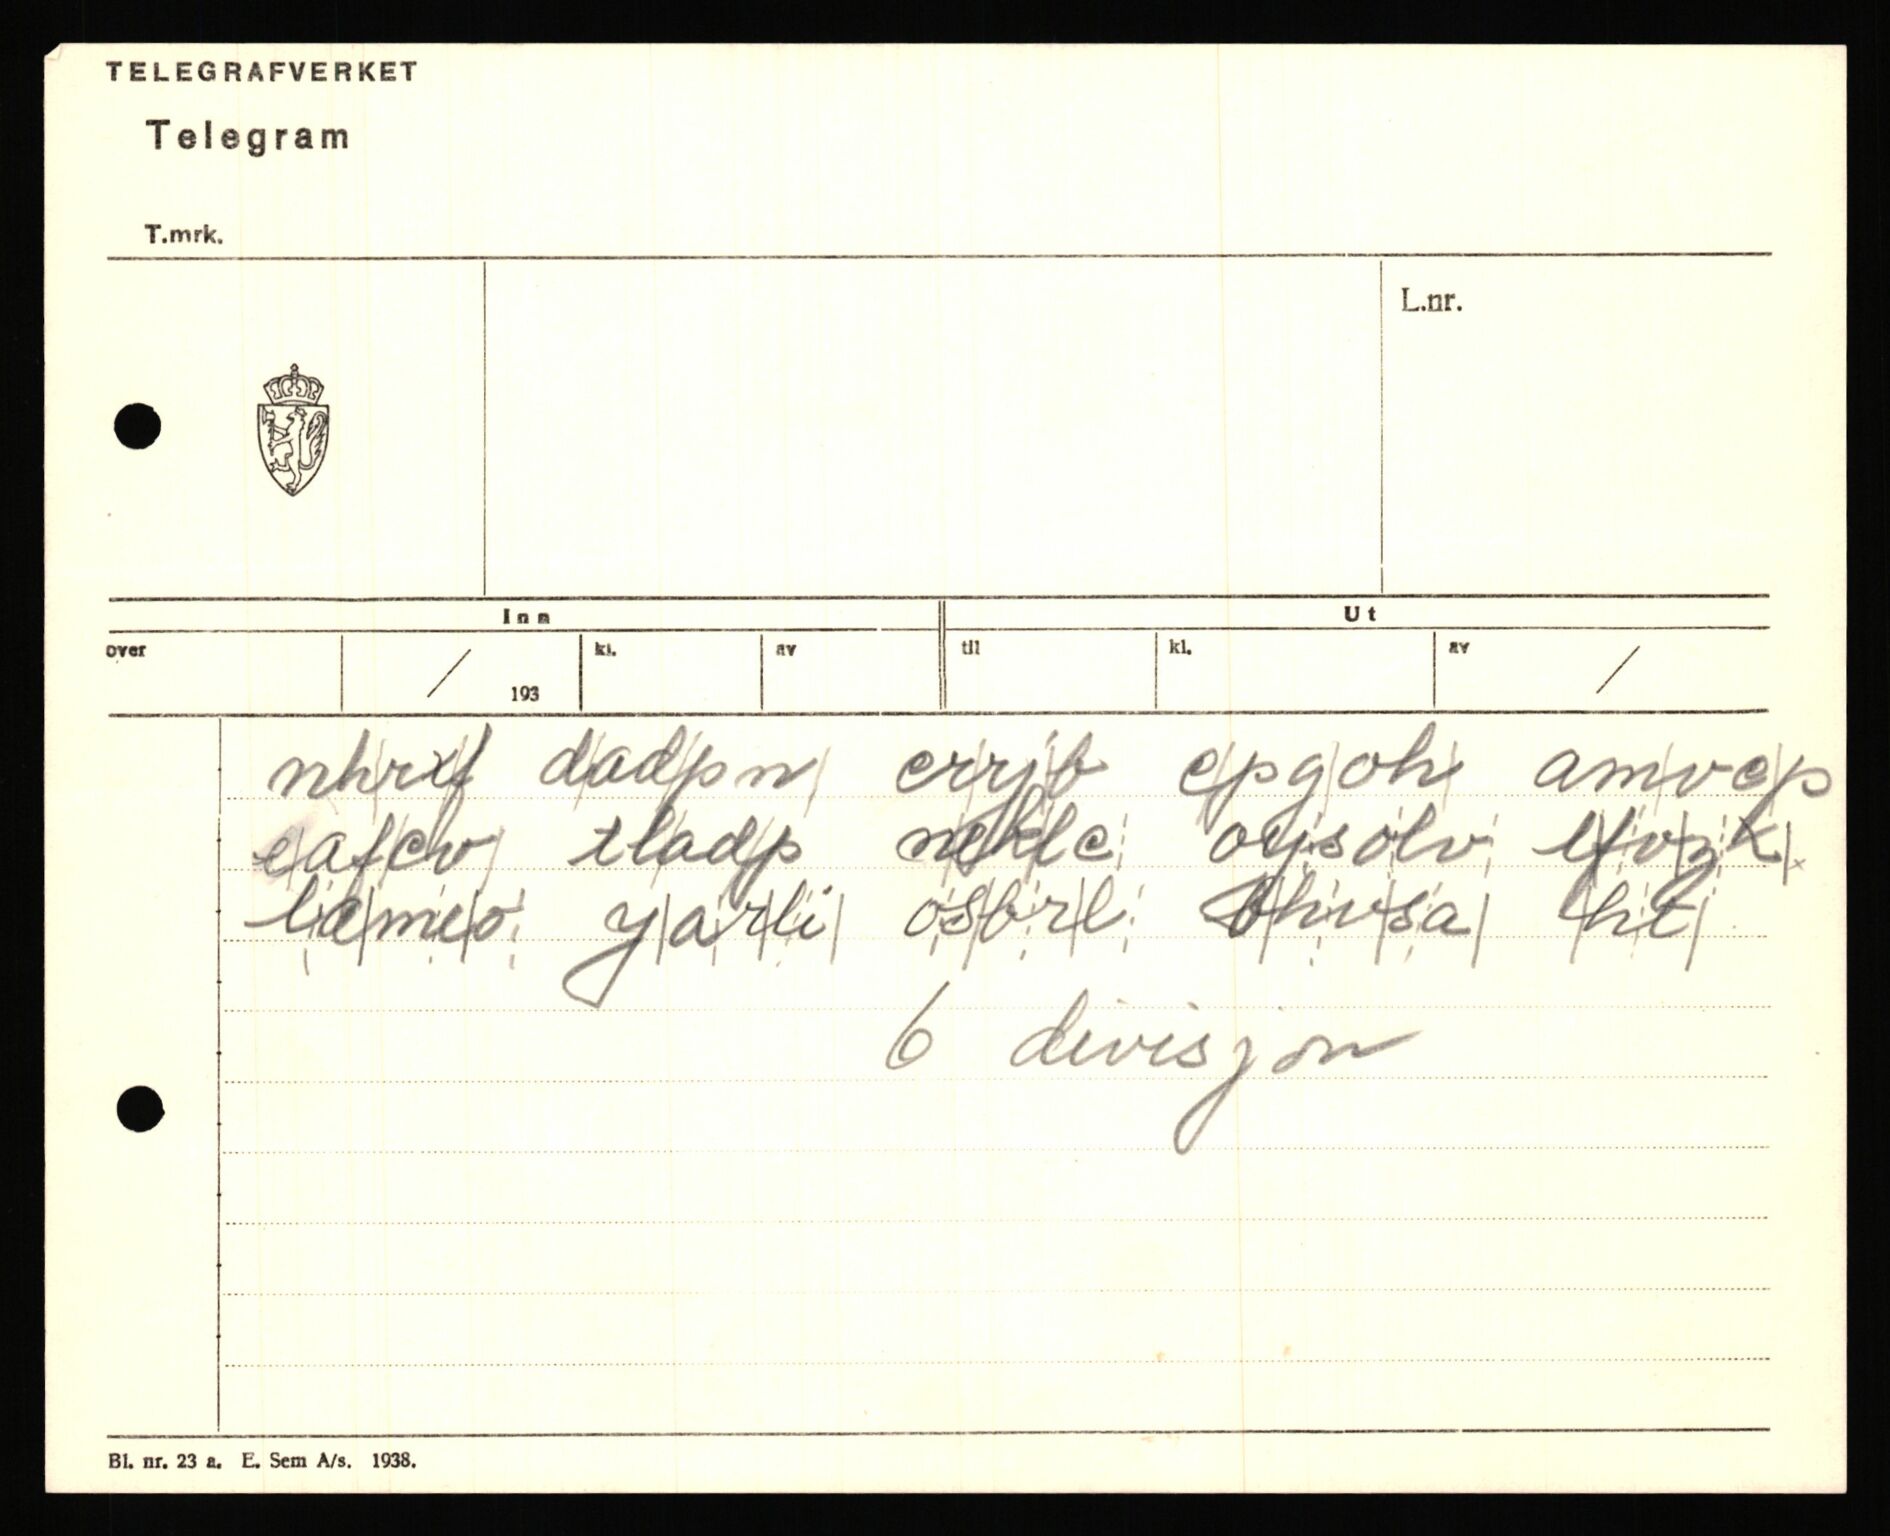 TELEGRAFVERKET
Telegram
T.mrk.
L.nr.
Inn
Ut
over / 193 kl. av til kl. av /
nhrxf dadpn errjb epgoh amvep
eafcv tladp oysolv lfvzk
yarli osbrl ohvsa ht
6 divisjon
Bl. nr. 23 a. E. Sem A/s. 1938.